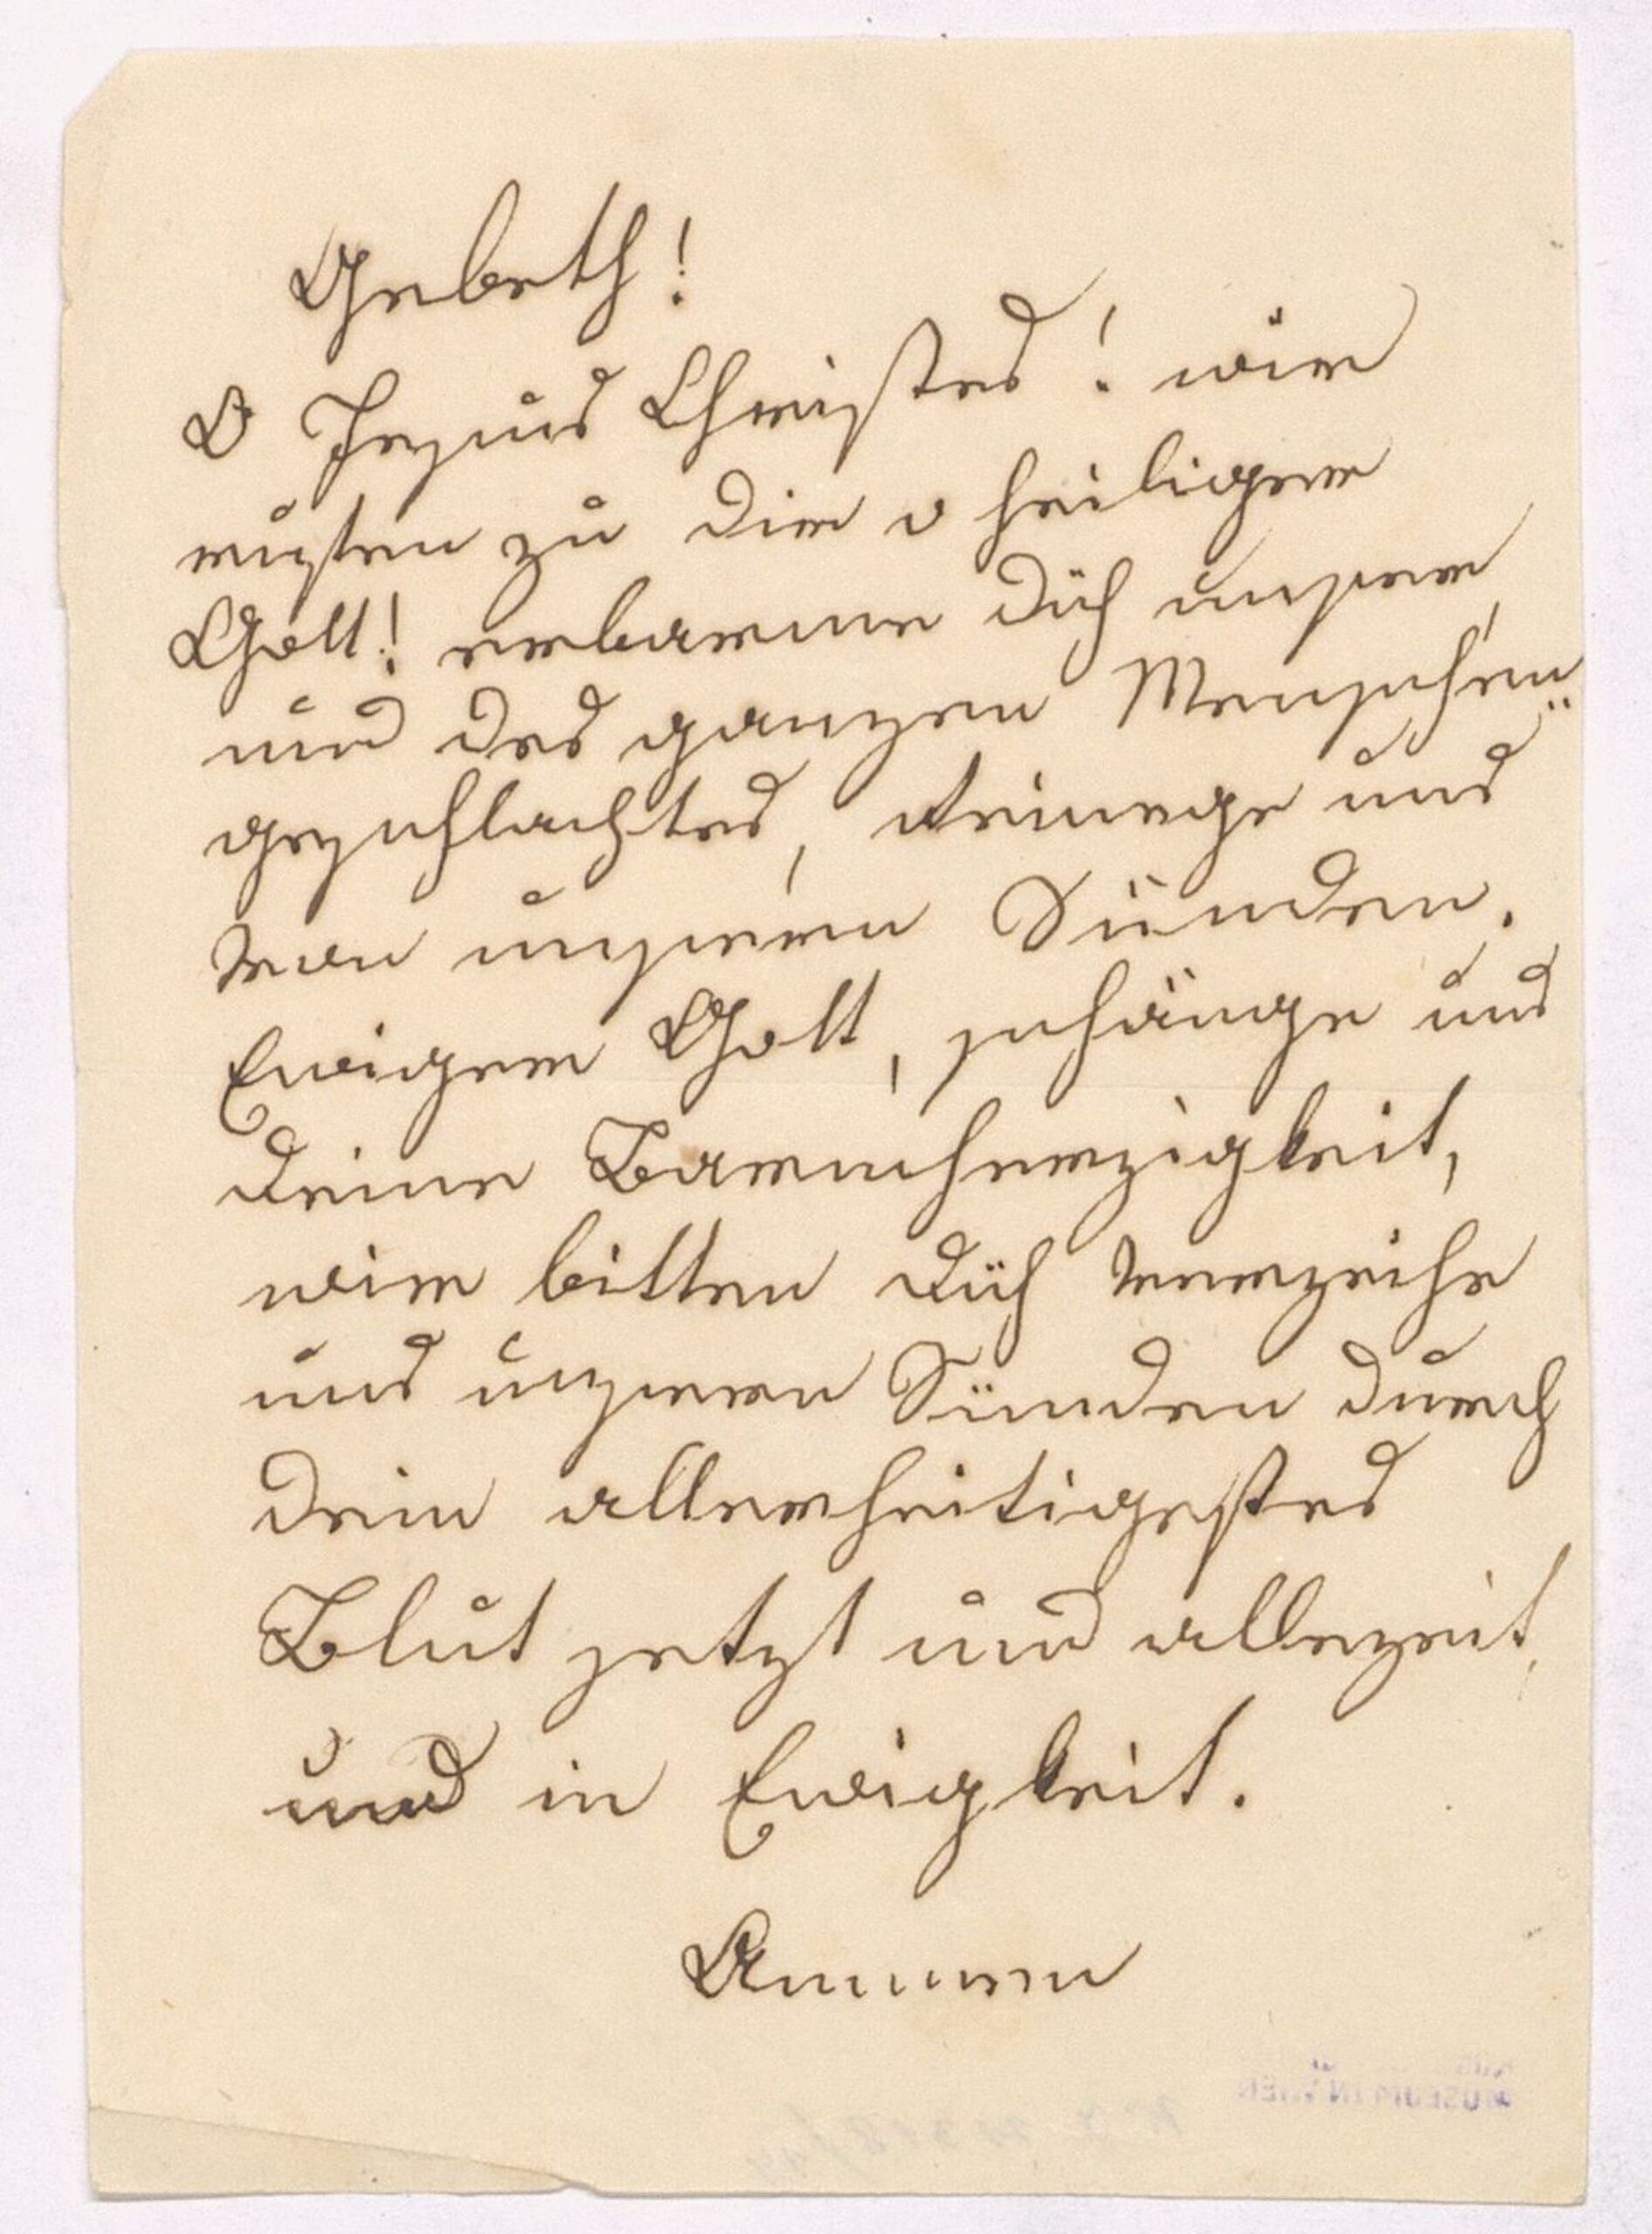 Gebeth!
O Jesus Christes! wir
rufen zu dir o heiliger
Gott! erbarme dich unser,
und des ganzen Menschen
geschlachtes, reinege uns
von unseren Sünden.
Ewiger Gott, schänge uns
deine Barmherzigkeit,
wir bitten dich verzeihe
uns unseren Sünden durch
dein allerheiligestes
Blut jetzt und allezeit,
und in Ewigkeit.
Ammen